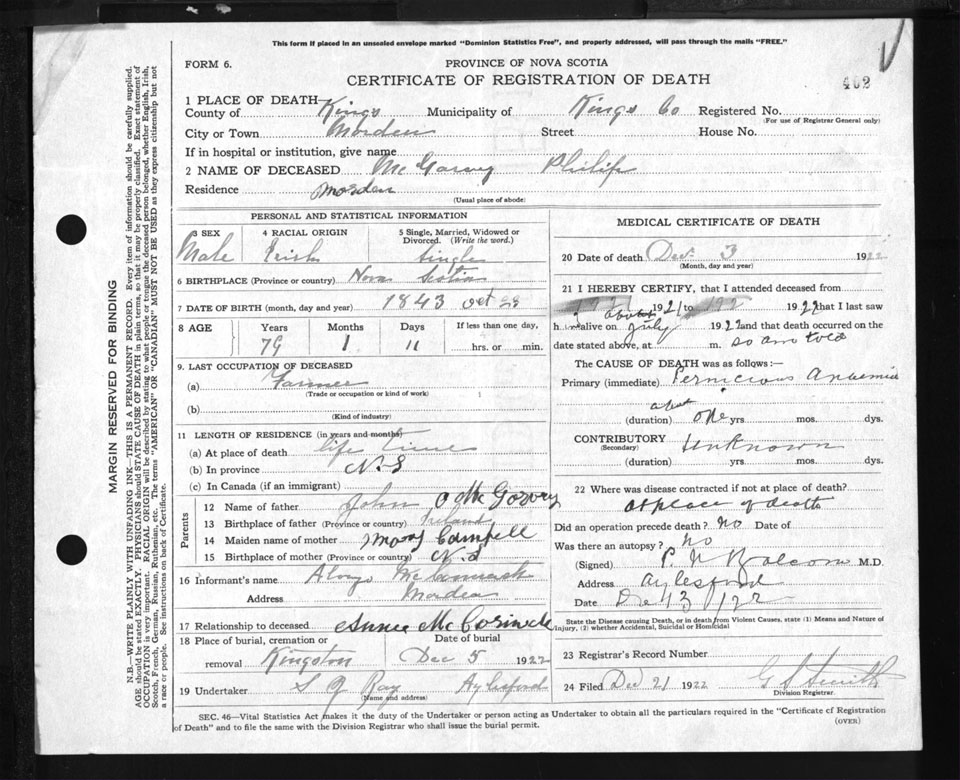 This form if placed in an unsealed envelope marked "Dominion Statistics Free", and properly addressed, will pass through the mails "FREE."
FORM 6.
PROVINCE OF NOVA SCOTIA
CERTIFICATE OF REGISTRATION OF DEATH
402
1 PLACE OF DEATH—
County of Kings Municipality of Kings Co Registered No.
(For use of Registrar General only)
City or Town Morden Street House No.
If in hospital or institution, give name
2 NAME OF DECEASED Mc Garvey Philip
Residence Morden
(Usual place of abode)
PERSONAL AND STATISTICAL INFORMATION
3 SEX Male
4 RACIAL ORIGIN Irish
5 Single, Married, Widowed or Divorced. (Write the word.) Single
6 BIRTHPLACE (Province or country) Nova Scotia
7 DATE OF BIRTH (month, day and year) 1843 Oct
8 AGE Years Months Days If less than one day,
79 1 11 hrs. or min.
9. LAST OCCUPATION OF DECEASED
(a) Farmer
(Trade or occupation or kind of work)
(b)
(Kind of industry)
11 LENGTH OF RESIDENCE (in years and months)
(a) At place of death life time
(b) In province N.S
(c) In Canada (if an immigrant)
Parents
12 Name of father John O Mc Garvey
13 Birthplace of father (Province or country) Ireland
14 Maiden name of mother Mary Campell
15 Birthplace of mother (Province or country) N.S
16 Informant's name Alonzo McCormack
Address Morden
17 Relationship to deceased
18 Place of burial, cremation or removal Kingston
Date of burial Dec 5 1922
19 Undertaker Ray Aylesford
(Name and address)
MEDICAL CERTIFICATE OF DEATH
20 Date of death Dec. 3 1922
(Month, day and year)
21 I HEREBY CERTIFY, that I attended deceased from
1921 to 1922 that I last saw
h im alive on about July 1922 and that death occurred on the
date stated above, at m. so am told
The CAUSE OF DEATH was as follows:—
Primary (immediate) Pernicious Anaemia
about
(duration) one yrs. mos. dys.
CONTRIBUTORY Unknown
(Secondary)
(duration) yrs. mos. dys.
22 Where was disease contracted if not at place of death?
At place of death
Did an operation precede death? No Date of
Was there an autopsy? No
(Signed) P. N Balcom M.D.
Address Aylesford
Date Dec 13/22
State the Disease causing Death, or in death from Violent Causes, state (1) Means and Nature of
Injury, (2) whether Accidental, Suicidal or Homicidal
23 Registrar's Record Number
24 Filed Dec 21 1922 G S Smith
Division Registrar.
SEC. 46—Vital Statistics Act makes it the duty of the Undertaker or person acting as Undertaker to obtain all the particulars required in the "Certificate of Registration
of Death" and to file the same with the Division Registrar who shall issue the burial permit.
(OVER)
MARGIN RESERVED FOR BINDING
N.B.—WRITE PLAINLY WITH UNFADING INK—THIS IS A PERMANENT RECORD. Every item of information should be carefully supplied.
AGE should be stated EXACTLY. PHYSICIANS should STATE CAUSE OF DEATH in plain terms, so that it may be properly classified. Exact statement of
OCCUPATION is very important. RACIAL ORIGIN will be described by stating to what people or tongue the deceased person belonged, whether English, Irish,
Scotch, French, German, Russian, Ruthenian, etc. The terms "AMERICAN" OR "CANADIAN" MUST NOT BE USED as they express citizenship but not
a race or people. See instructions on back of Certificate.